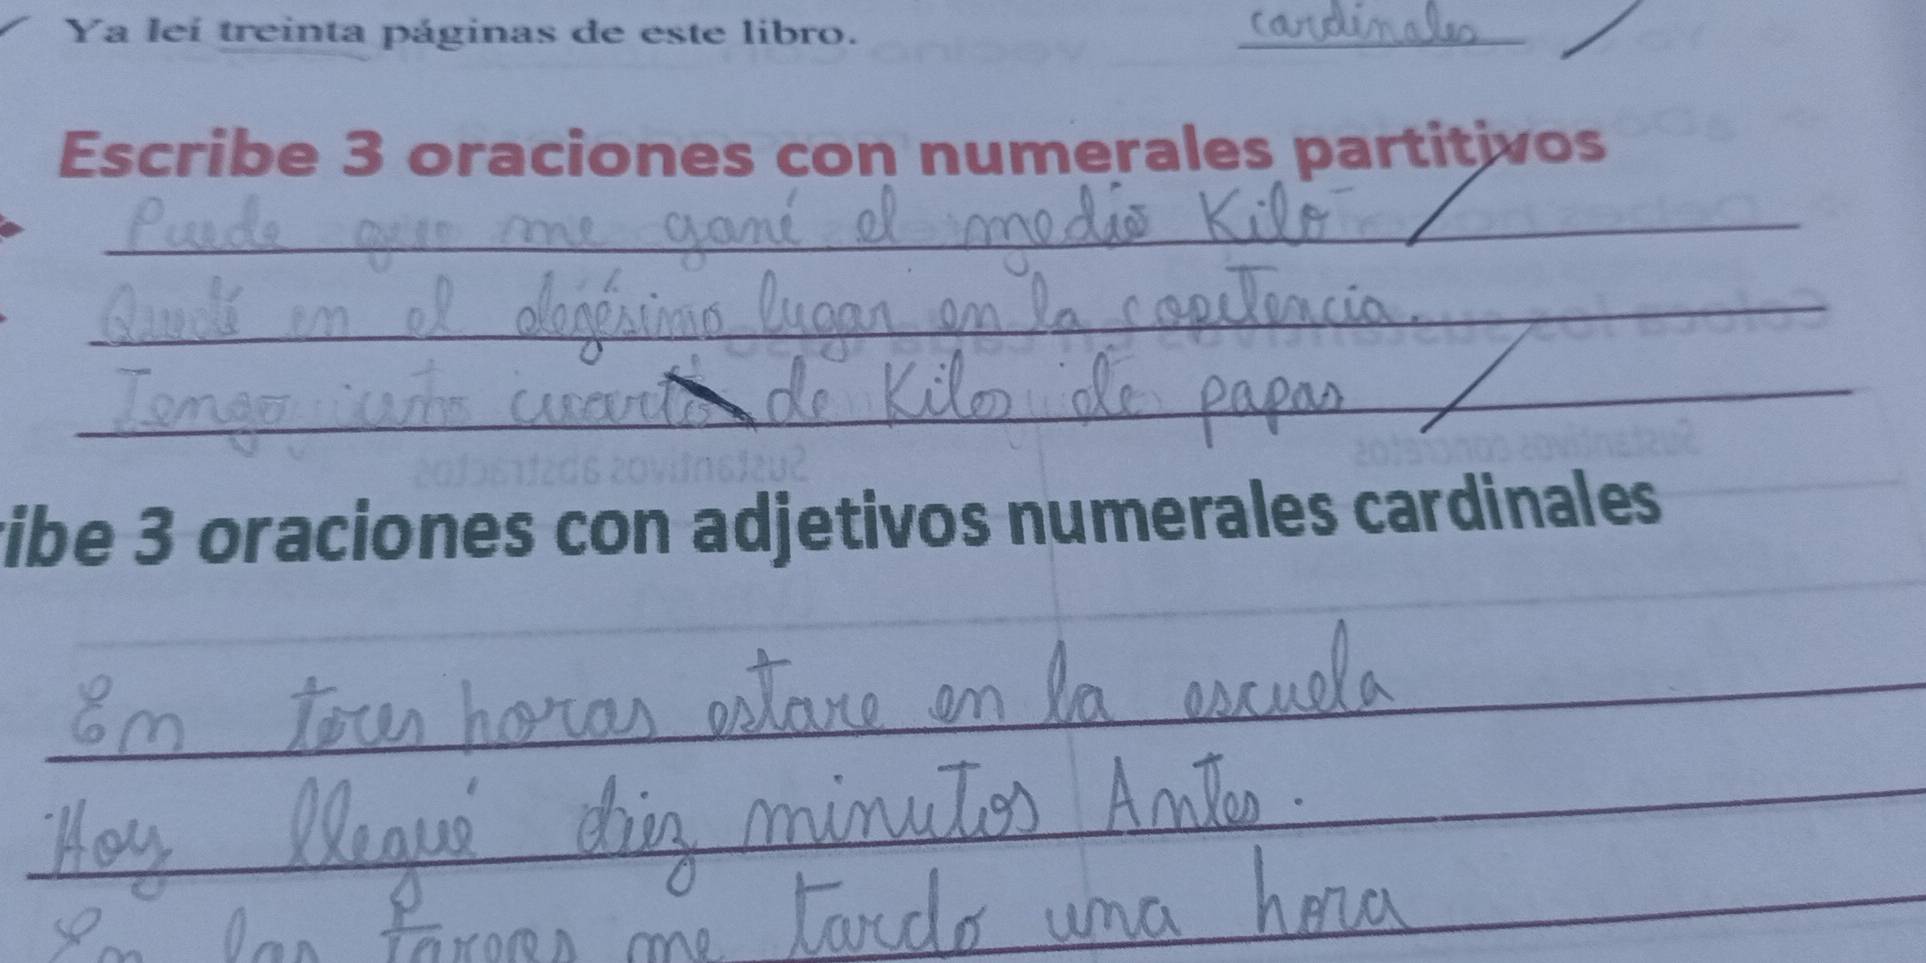 Ya leí treinta páginas de este libro. cardinales
Escribe 3 oraciones con numerales partitivos
Puede que me gané el medio Kilo
Quedé en el degésimo lugar en la copetencia.
Tengo cuarto de Kilo de papas
ribe 3 oraciones con adjetivos numerales cardinales
En tres horas estare en la escuela
Hoy llegué diez minutos Antes.
En las tareas me tardo una hora